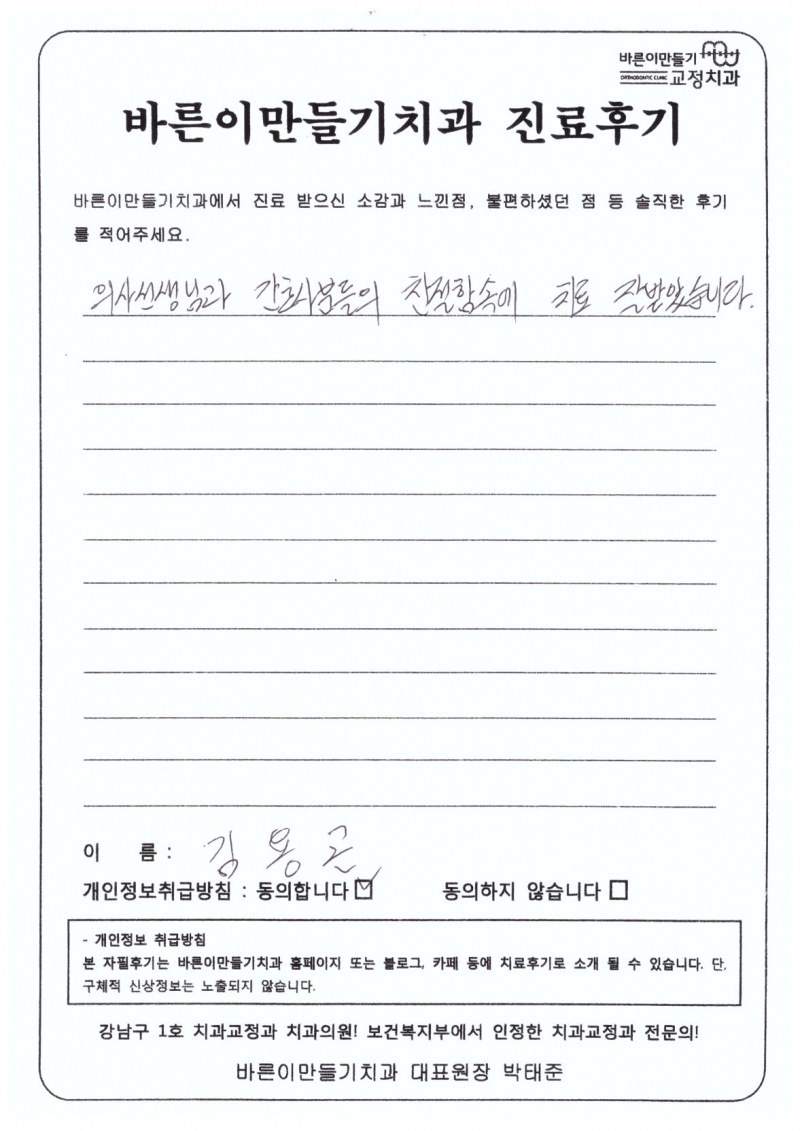 바른이만들기
ORTHODONTIC CLINIC 교정치과
바른이만들기치과 진료후기
바른이만들기치과에서 진료 받으신 소감과 느낀점, 불편하셨던 점 등 솔직한 후기
를 적어주세요.
의사선생님과 간호사분들의 친절함속에 치료 잘받았습니다.
이 름 : 김용근
개인정보취급방침 : 동의합니다 ☑ 동의하지 않습니다 □
- 개인정보 취급방침
본 자필후기는 바른이만들기치과 홈페이지 또는 블로그, 카페 등에 치료후기로 소개 될 수 있습니다. 단,
구체적 신상정보는 노출되지 않습니다.
강남구 1호 치과교정과 치과의원! 보건복지부에서 인정한 치과교정과 전문의!
바른이만들기치과 대표원장 박태준